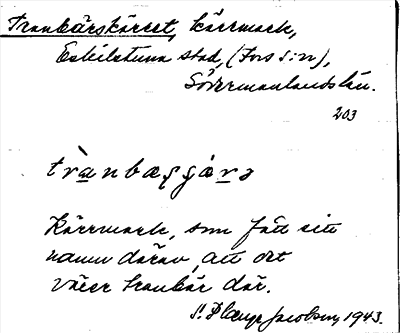 Tranbärskärret, kärrmark,
Eskilstuna stad, (Fors s:n),
Södermanlands län.
203
trànbæṣçárə
Kärrmark, som fått sitt
namn därav, att det
växer tranbär där.
Jacobson, 1943.